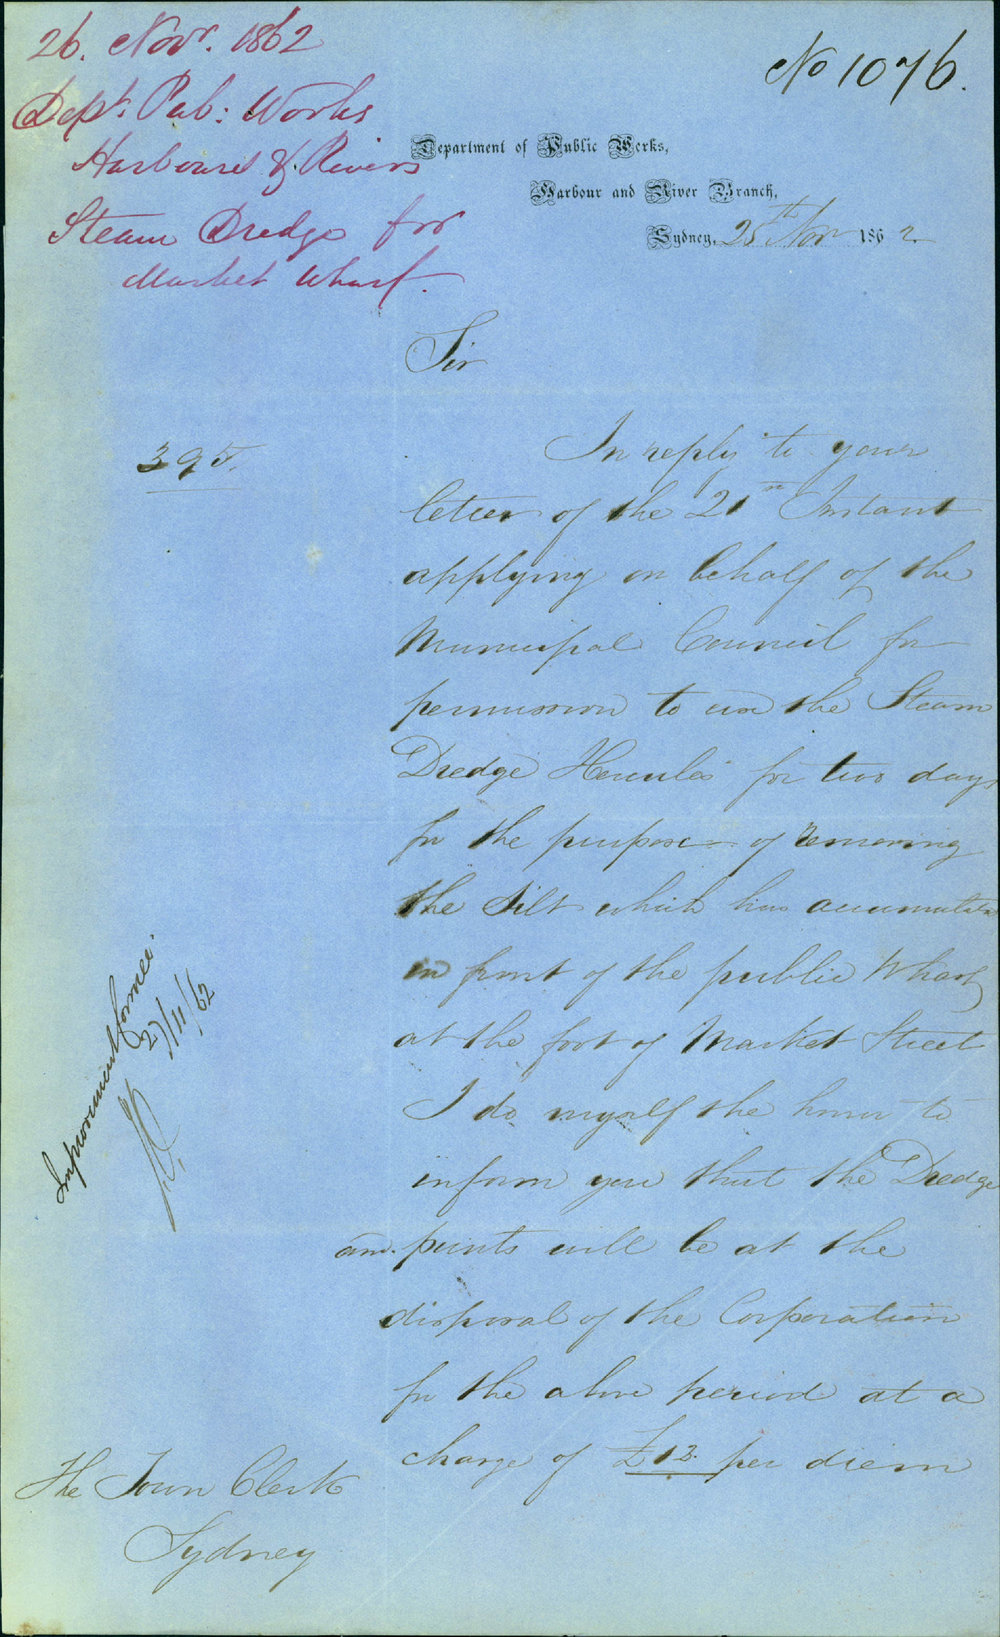 26. Novr. 1862
No 1076.
Dept. Pub: Works
Harbours & Rivers
Steam Dredge for
Market Wharf.
Department of Public Works,
Harbour and River Branch,
Sydney, 25th Novr 1862.
Sir
395.
In reply to your
letter of the 21st Instant
applying on behalf of the
Municipal Council for
permission to use the Steam
Dredge Hercules for two days
for the purpose of removing
the Silt which has accumulated
in front of the public Wharf
at the foot of Market Street
I do myself the honor to
inform you that the Dredge
and punts will be at the
disposal of the Corporation
for the above period at a
charge of £12. per diem
Improvement Commee.
27/11/62
The Town Clerk
Sydney